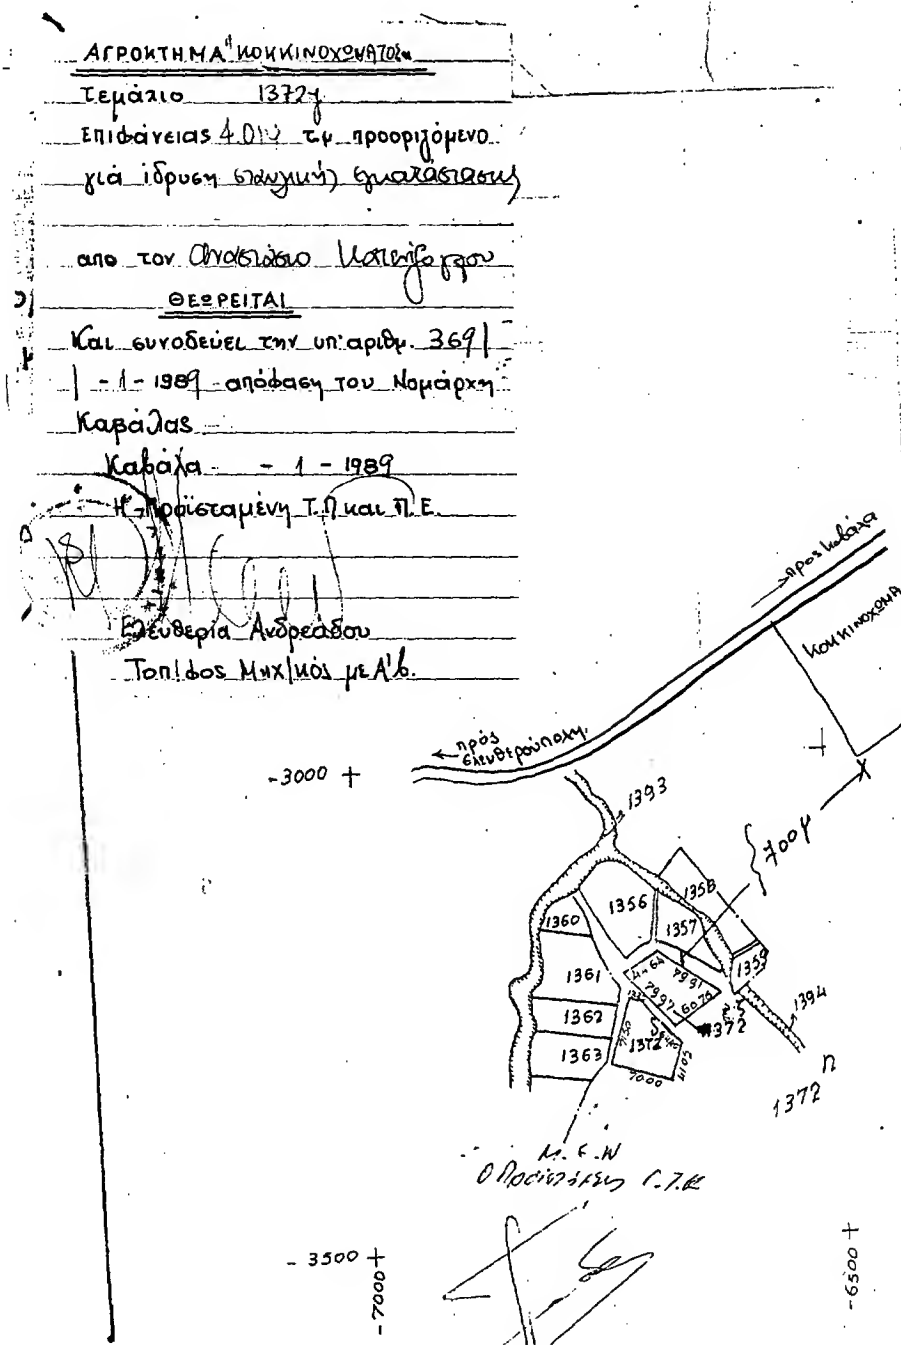 ΑΓΡΟΚΤΗΜΑ "ΚΟΚΚΙΝΟΧΩΜΑΤΟΣ"
Τεμάχιο 1372γ
Επιφάνειας τμ προοριζόμενο
γιά ίδρυση σταυλικής εγκατάστασης
απο τον Αναστάσιο
ΘΕΩΡΕΙΤΑΙ
Και συνοδεύει την υπ'αριθμ. 369/
/-1-1989 απόφαση του Νομάρχη
Καβάλας
Καβάλα - 1 - 1989
Η Προϊσταμένη Τ.Π και Π.Ε.
Ελευθερία Ανδρεάδου
Τοπ/φος Μηχ/κός με Α'β.
προς Καβάλα
ΚΟΚΚΙΝΟΧΩΜΑ
πρός
Ελευθερούπολη.
-3000 +
1393
700μ
1358
1356
1357
1360
1359
1361
7991
7997
6076
1394
1362
1372
1363
1372
4102
7000
1372
Ο Προϊστάμενος
- 3500 +
-7000
-6500 +